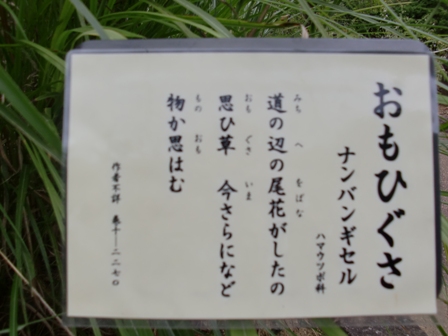 おもひぐさ
ナンバンギセル
ハマウツボ科
道の辺の尾花がしたの
みち へ をばな
思ひ草 今さらになど
おも ぐさ いま
物か思はむ
もの おも
作者不詳 巻十―二二七〇